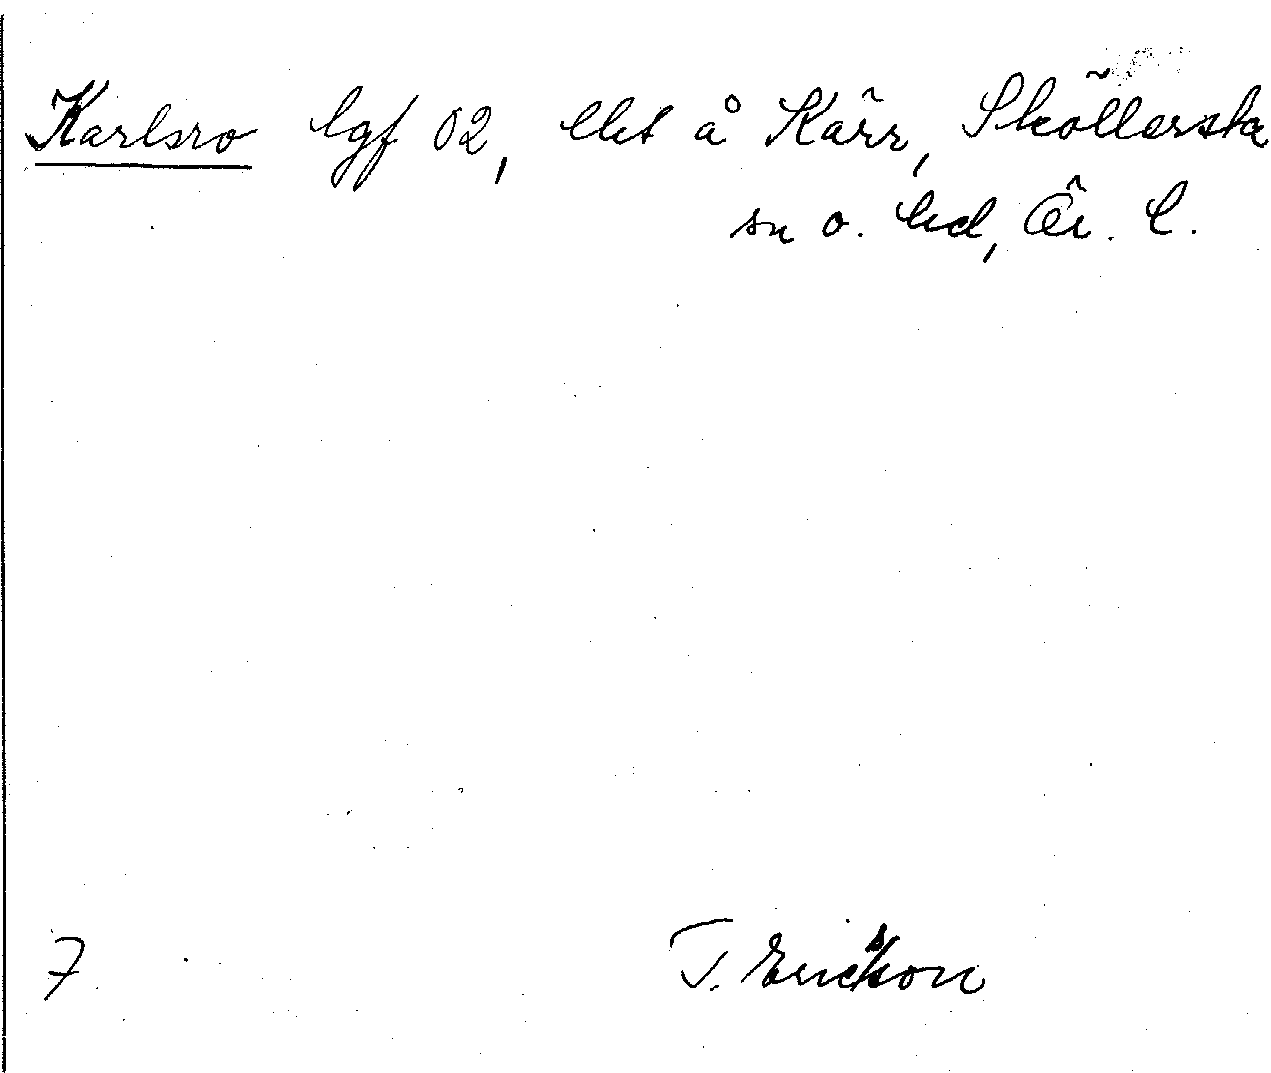 Karlsro lgf 02, lht å Kärr, Sköllersta
sn o. hd, Ör. l.
7 T. Ericson